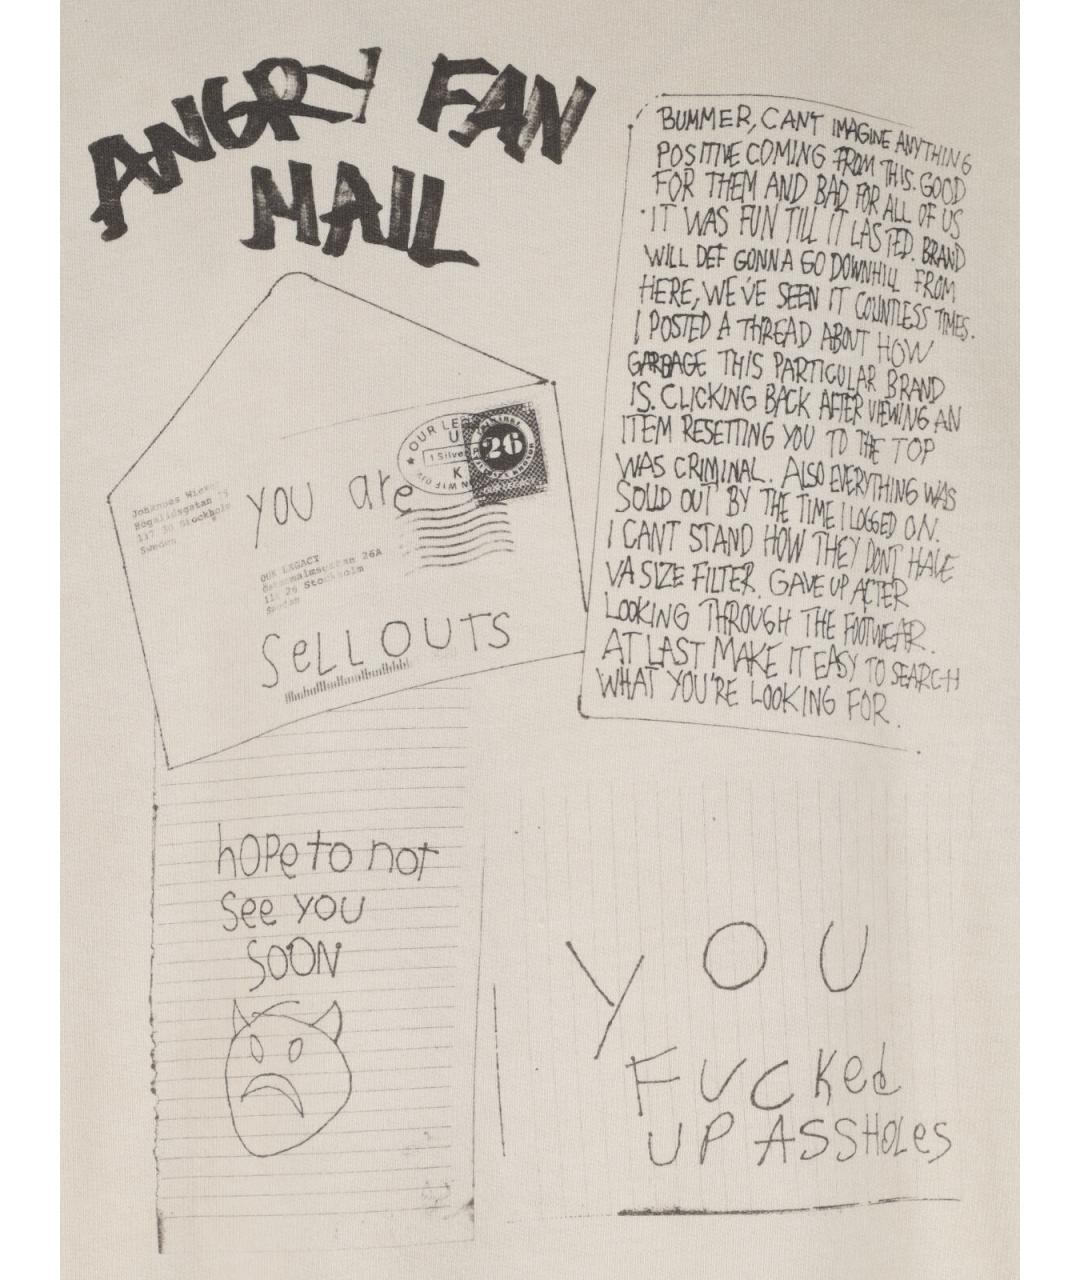 ANGRY FAN
MAIL
BUMMER, CAN'T IMAGINE ANYTHING
POSITIVE COMING FROM THIS. GOOD
FOR THEM AND BAD FOR ALL OF US
IT WAS FUN TILL IT LASTED. BRAND
WILL DEF GONNA GO DOWNHILL FROM
HERE, WE'VE SEEN IT COUNTLESS TIMES.
I POSTED A THREAD ABOUT HOW
GARBAGE THIS PARTICULAR BRAND
IS. CLICKING BACK AFTER VIEWING AN
ITEM RESETTING YOU TO THE TOP
WAS CRIMINAL. ALSO EVERYTHING WAS
SOLD OUT BY THE TIME I LOGGED ON.
I CANT STAND HOW THEY DONT HAVE
VA SIZE FILTER. GAVE UP AFTER
LOOKING THROUGH THE FOOTWEAR.
AT LAST MAKE IT EASY TO SEARCH
WHAT YOU'RE LOOKING FOR.
OUR LE
U
1 Silver
K
26
Johannes
Högalidsgatan
117 30 Stockholm
Sweden
you are
OUR LEGACY
26A
26 Stockholm
Sweden
SeLLOUTS
hOPe to not
See YOU
SOON
YOU
FUCKed
UP ASSHOLes